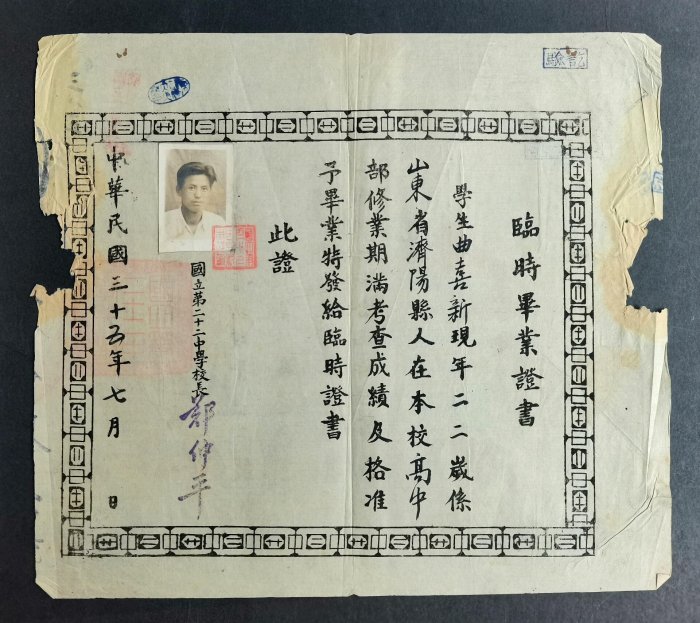 臨時畢業證書
學生曲喜新現年二二歲係
山東省濟陽縣人在本校高中
部修業期滿考查成績及格准
予畢業特發給臨時證書
此證
國立第二十二中學校長
中華民國三十五年七月 日